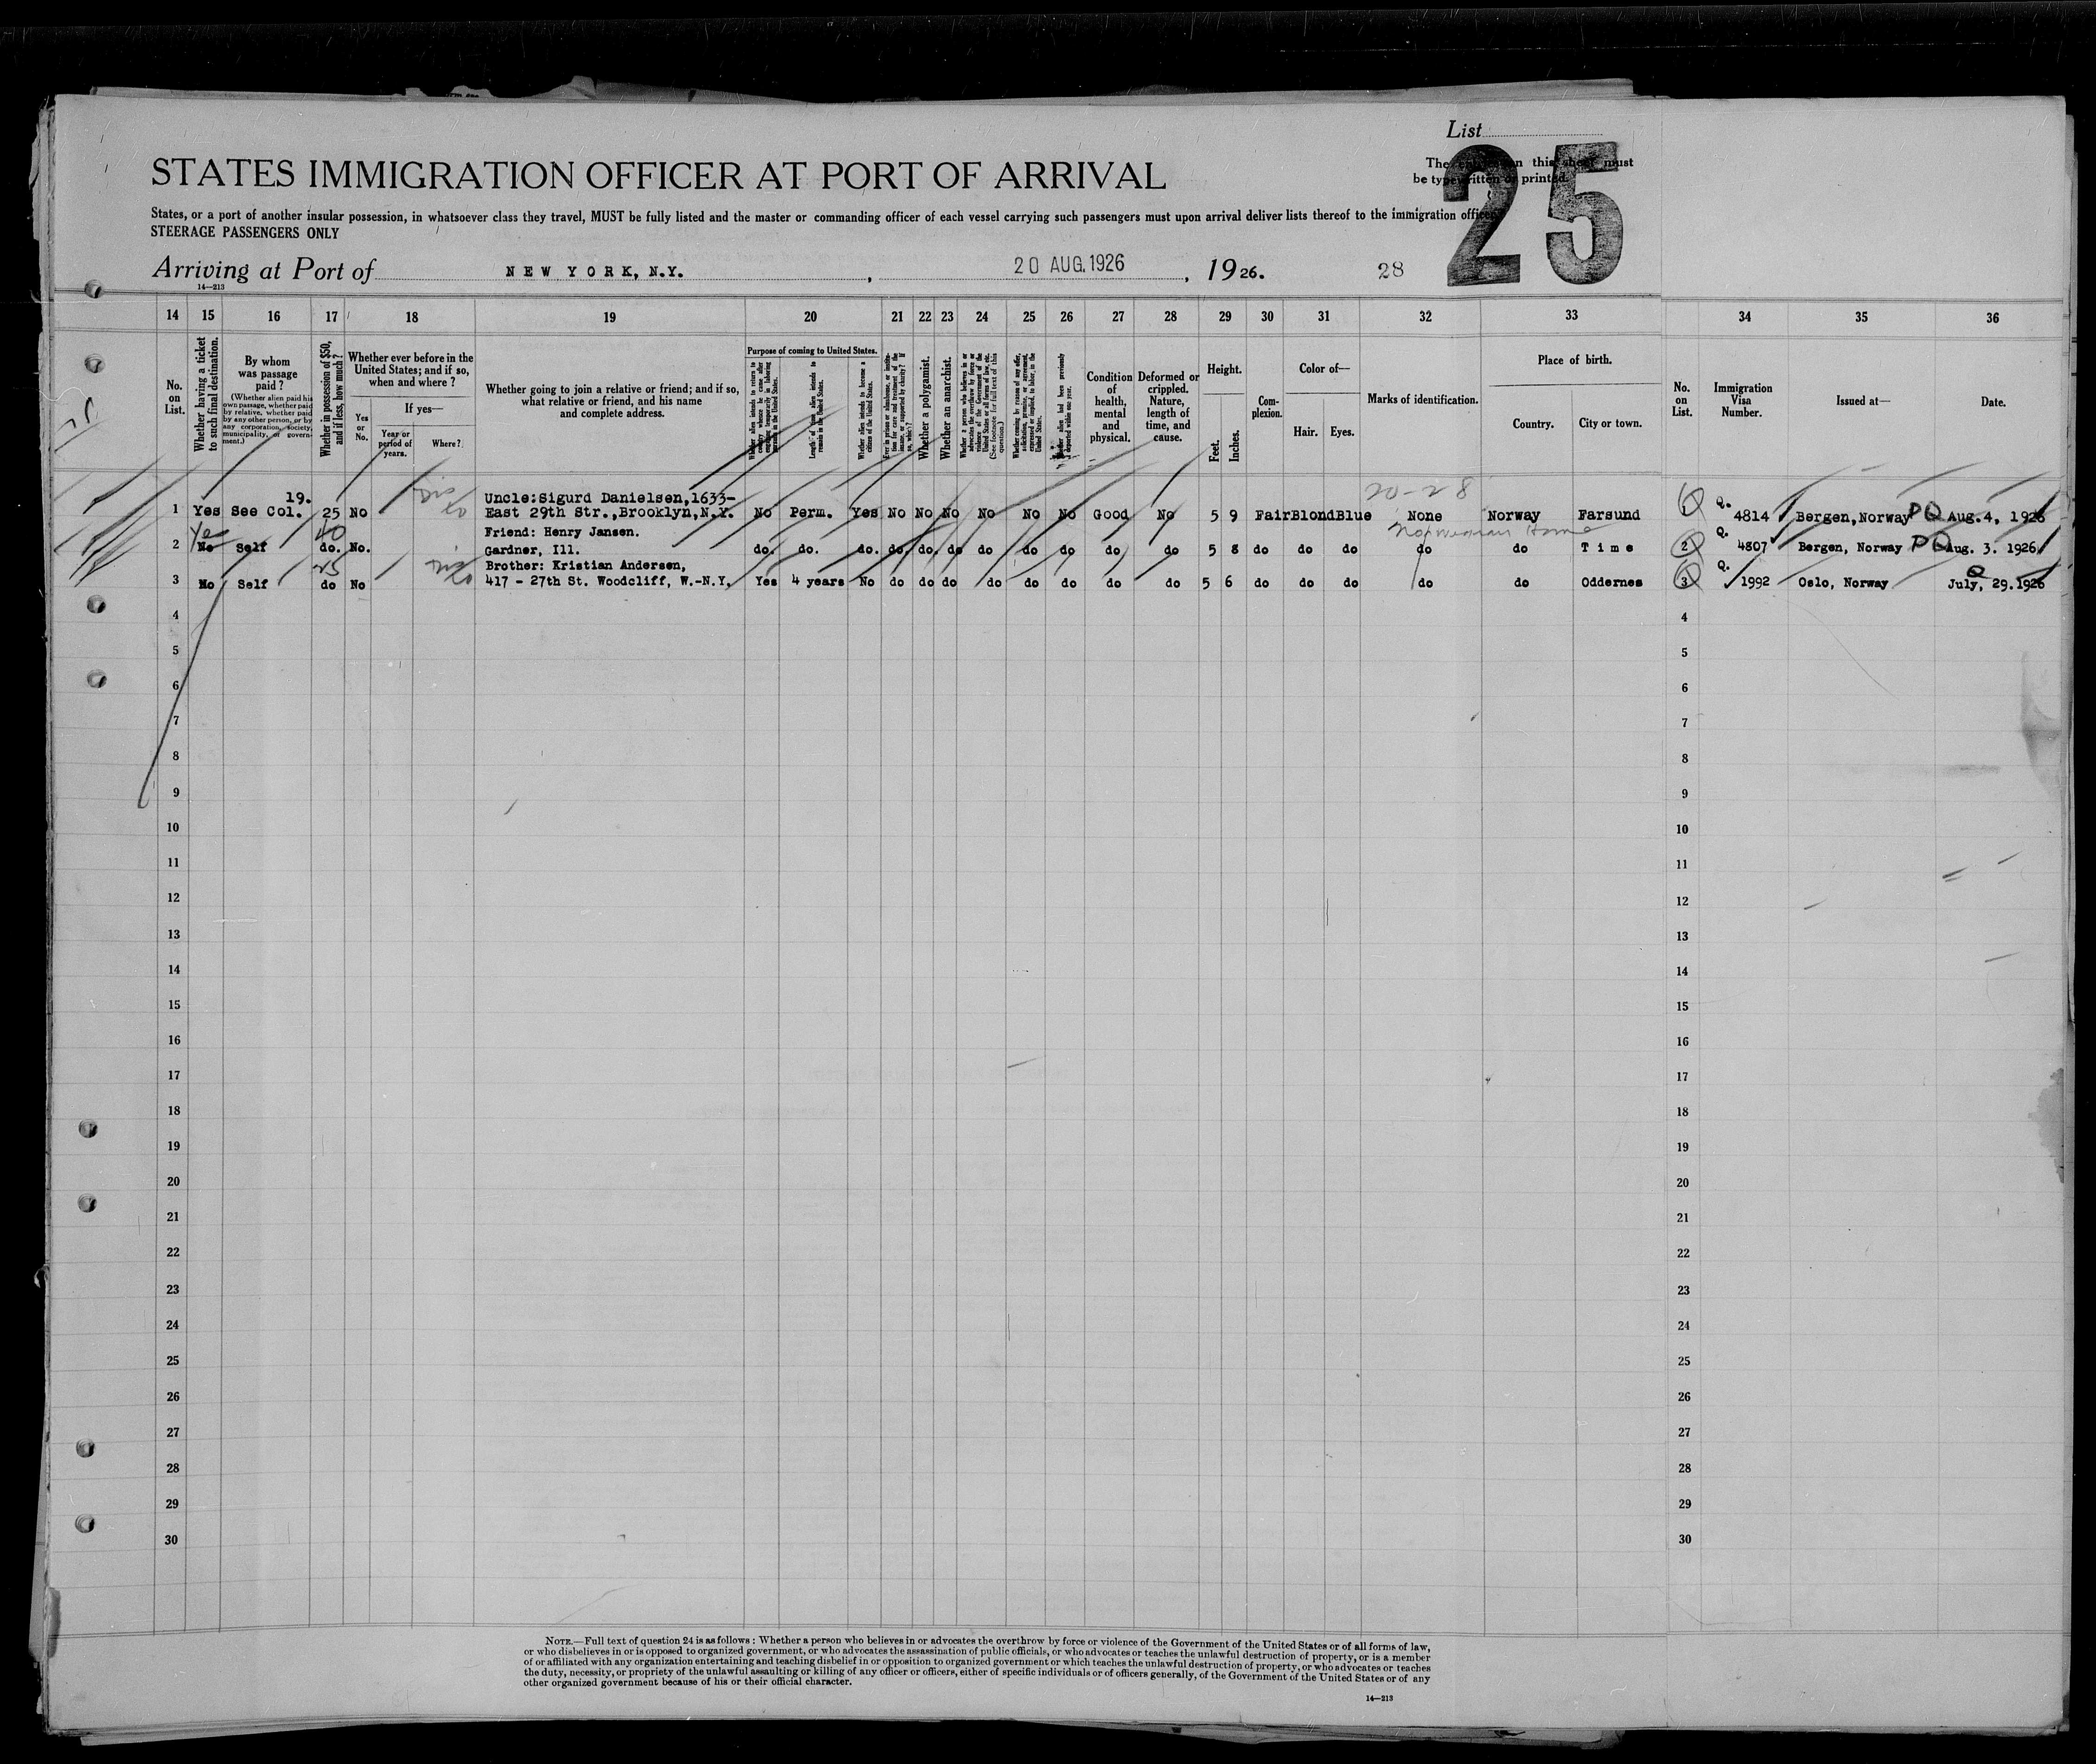 List
25
The entries on this sheet must
be typewritten or printed.
STATES IMMIGRATION OFFICER AT PORT OF ARRIVAL
States, or a port of another insular possession, in whatsoever class they travel, MUST be fully listed and the master or commanding officer of each vessel carrying such passengers must upon arrival deliver lists thereof to the immigration officer
STEERAGE PASSENGERS ONLY
Arriving at Port of NEW YORK, N.Y. , 20 AUG. 1926 , 1926. 28
14—213
14 15 16 17 18 19 20 21 22 23 24 25 26 27 28 29 30 31 32 33 34 35 36
No. on List.
Whether having a ticket to such final destination.
By whom was passage paid?
(Whether alien paid his own passage, whether paid by relative, whether paid by any other person, or by any corporation, society, municipality, or government.)
Whether in possession of $50, and if less, how much?
Whether ever before in the United States; and if so, when and where?
If yes—
Yes or No.
Year or period of years.
Where?
Whether going to join a relative or friend; and if so, what relative or friend, and his name and complete address.
Purpose of coming to United States.
Length of time alien intends to remain in the United States.
Whether alien intends to become a citizen of the United States.
Whether a polygamist.
Whether an anarchist.
Condition of health, mental and physical.
Deformed or crippled. Nature, length of time, and cause.
Height.
Feet.
Inches.
Complexion.
Color of—
Hair.
Eyes.
Marks of identification.
Place of birth.
Country.
City or town.
No. on List.
Immigration Visa Number.
Issued at—
Date.
20-28
19. Uncle:Sigurd Danielsen,1633-
1 Yes See Col. 25 No East 29th Str.,Brooklyn,N.Y. No Perm. Yes No No No No No No Good No 5 9 Fair Blond Blue None Norway Farsund 1 Q. 4814 Bergen,Norway PQ Aug.4, 1926
Yes 40 Friend: Henry Jansen. Norwegian Home
2 No Self do. No. Gardner, Ill. do. do. do. do. do. do do do do do do 5 8 do do do do do Time 2 Q. 4807 Bergen, Norway PQ Aug. 3. 1926
25 Brother: Kristian Andersen,
3 No Self do No 417 - 27th St. Woodcliff, W.-N.Y. Yes 4 years No do do do do do do do do 5 6 do do do do do Oddernes 3 Q. 1992 Oslo, Norway Q July, 29.1926
4 4
5 5
6 6
7 7
8 8
9 9
10 10
11 11
12 12
13 13
14 14
15 15
16 16
17 17
18 18
19 19
20 20
21 21
22 22
23 23
24 24
25 25
26 26
27 27
28 28
29 29
30 30
NOTE.—Full text of question 24 is as follows: Whether a person who believes in or advocates the overthrow by force or violence of the Government of the United States or of all forms of law,
or who disbelieves in or is opposed to organized government, or who advocates the assassination of public officials, or who advocates or teaches the unlawful destruction of property, or is a member
of or affiliated with any organization entertaining and teaching disbelief in or opposition to organized government or which teaches the unlawful destruction of property, or who advocates or teaches
the duty, necessity, or propriety of the unlawful assaulting or killing of any officer or officers, either of specific individuals or of officers generally, of the Government of the United States or of any
other organized government because of his or their official character.
14—213